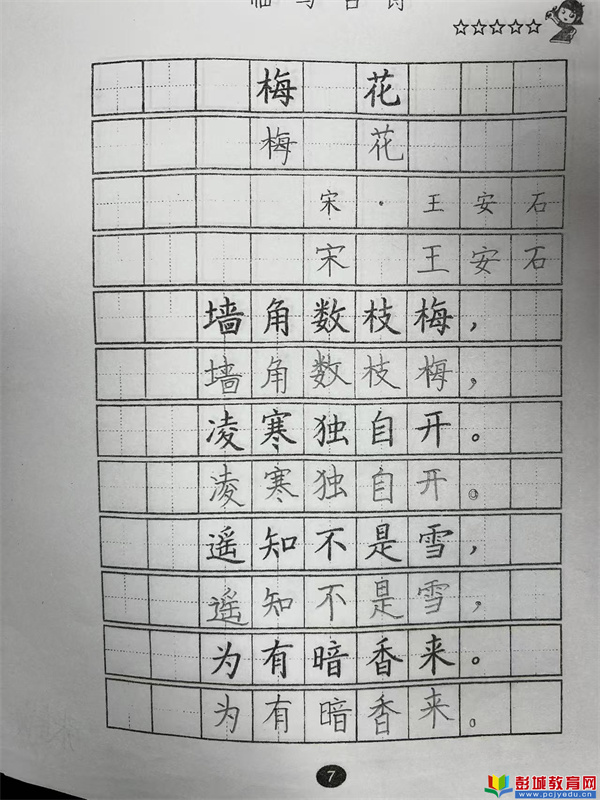 临写古诗
☆☆☆☆☆
梅花
梅花
宋·王安石
宋 王安石
墙角数枝梅，
墙角数枝梅，
凌寒独自开。
凌寒独自开。
遥知不是雪，
遥知不是雪，
为有暗香来。
为有暗香来。
7
彭城教育网
www.pcjyedu.cn